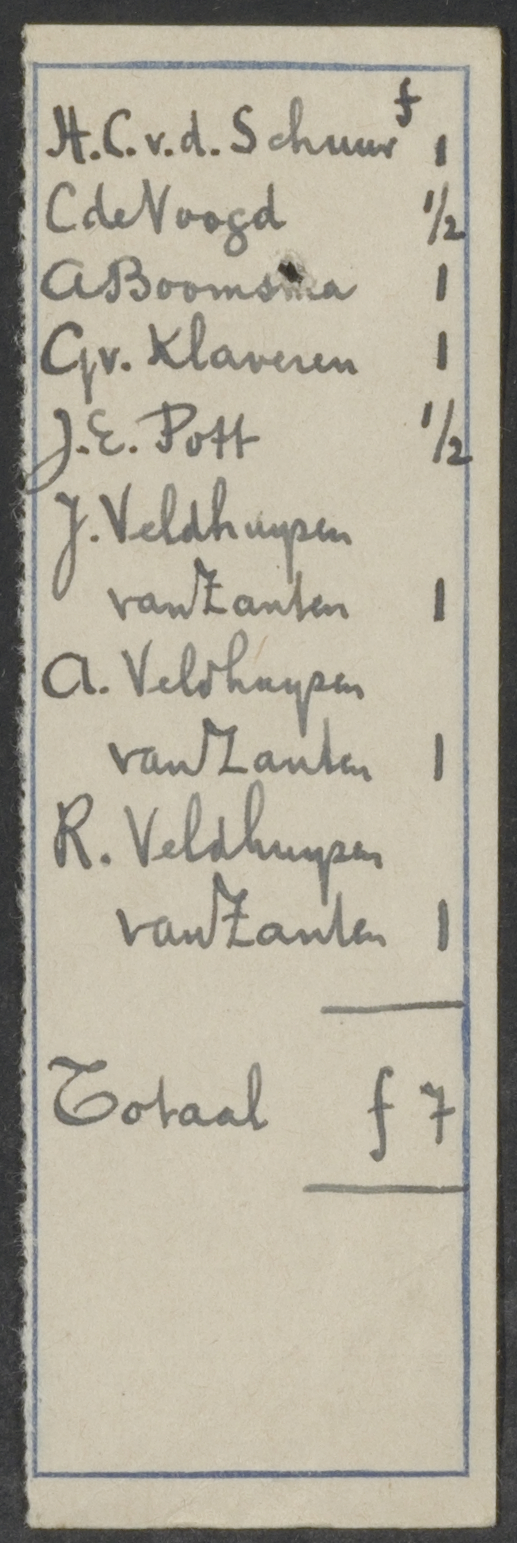 f
H.C.v.d. Schuur 1
C de Voogd 1/2
A Boomsma 1
G v. Klaveren 1
J.E. Pott 1/2
J. Veldhuyzen
van Zanten 1
A. Veldhuyzen
van Zanten 1
R. Veldhuyzen
van Zanten 1
Totaal f 7